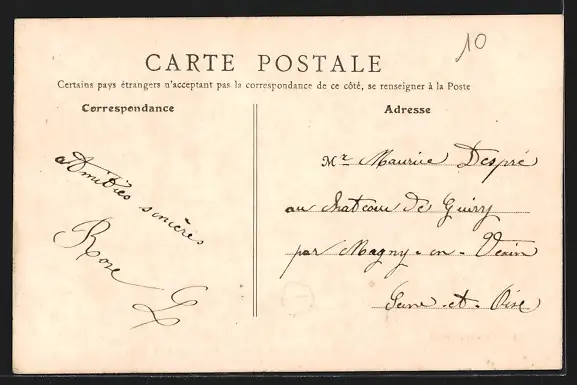 10
CARTE POSTALE
Certains pays étrangers n'acceptent pas la correspondance de ce côté, se renseigner à la Poste
Correspondance
Amitiés sincères
Rose L
Adresse
Mr Maurice Despré
au chateau de Guiry
par Magny-en-Vexin
Seine-et-Oise